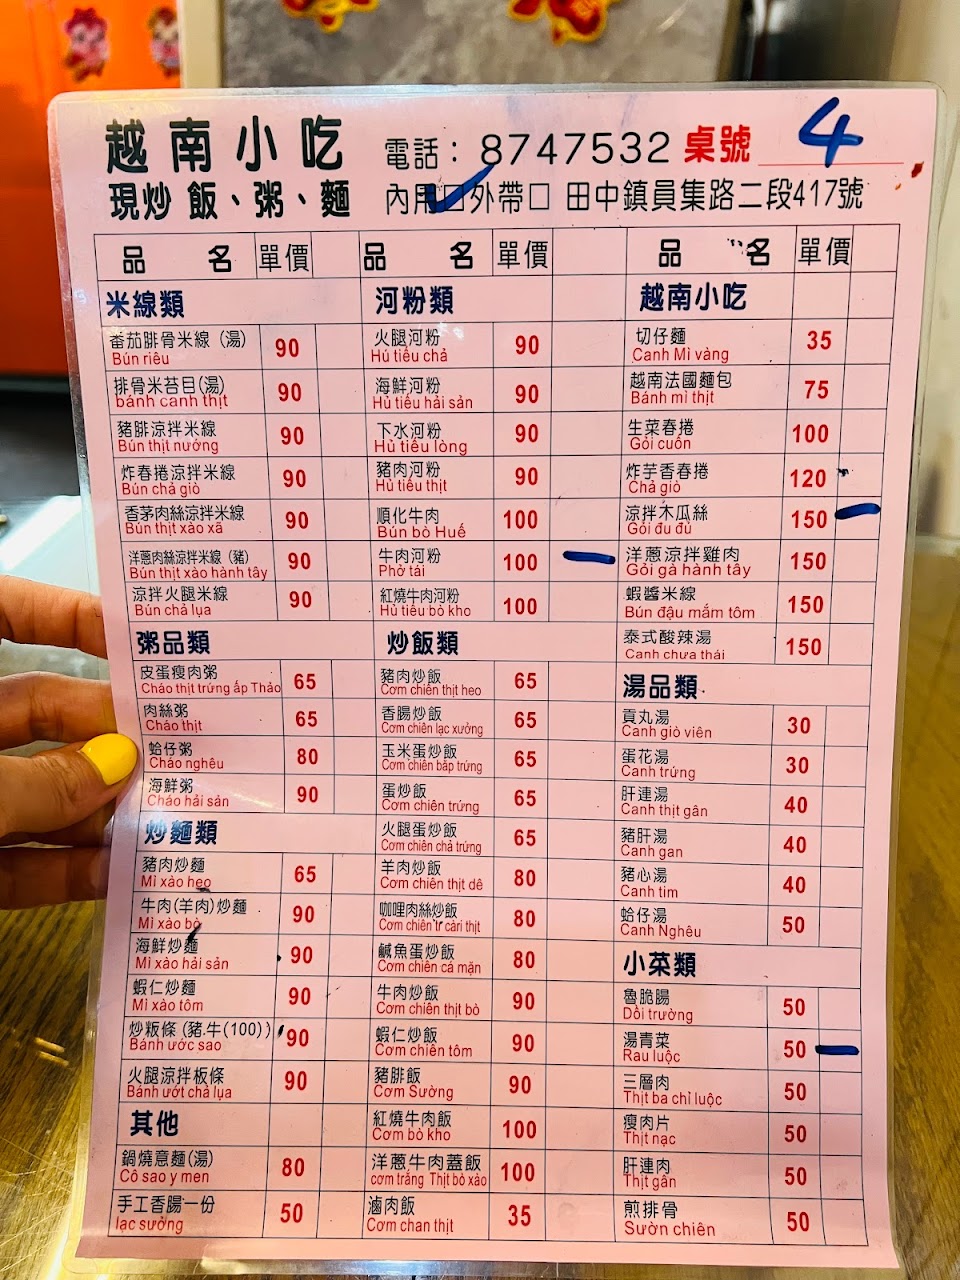 越南小吃 電話：8747532 桌號 4
現炒 飯、粥、麵 內用□外帶□ 田中鎮員集路二段417號
品 名 單價
米線類
番茄腓骨米線 (湯) 90
Bún riêu
排骨米苔目(湯) 90
bánh canh thịt
豬腓涼拌米線 90
Bún thịt nướng
炸春捲涼拌米線 90
Bún chả giò
香茅肉絲涼拌米線 90
Bún thịt xào xã
洋蔥肉絲涼拌米線（豬） 90
Bún thịt xào hành tây
涼拌火腿米線 90
Bún chả lụa
粥品類
皮蛋瘦肉粥 65
Cháo thịt trứng ấp Thảo
肉絲粥 65
Cháo thịt
蛤仔粥 80
Cháo nghêu
海鮮粥 90
Cháo hải sản
炒麵類
豬肉炒麵 65
Mì xào heo
牛肉(羊肉)炒麵 90
Mì xào bò
海鮮炒麵 90
Mì xào hải sản
蝦仁炒麵 90
Mì xào tôm
炒粄條 (豬.牛(100)) 90
Bánh ước sao
火腿涼拌板條 90
Bánh ướt chả lụa
其他
鍋燒意麵(湯) 80
Cô sao y men
手工香腸一份 50
lạc sưởng
品 名 單價
河粉類
火腿河粉 90
Hú tiếu chả
海鮮河粉 90
Hủ tiếu hải sản
下水河粉 90
Hủ tiếu lòng
豬肉河粉 90
Hủ tiếu thịt
順化牛肉 100
Bún bò Huế
牛肉河粉 100
Phở tái
紅燒牛肉河粉 100
Hủ tiếu bò kho
炒飯類
豬肉炒飯 65
Cơm chiên thịt heo
香腸炒飯 65
Cơm chiên lạc xưởng
玉米蛋炒飯 65
Cơm chiên bắp trứng
蛋炒飯 65
Cơm chiên trứng
火腿蛋炒飯 65
Cơm chiên chả trứng
羊肉炒飯 80
Cơm chiên thịt dê
咖哩肉絲炒飯 80
Cơm chiên tr cári thịt
鹹魚蛋炒飯 80
Cơm chiên cá mặn
牛肉炒飯 90
Cơm chiên thịt bò
蝦仁炒飯 90
Cơm chiên tôm
豬腓飯 90
Cơm Sường
紅燒牛肉飯 100
Cơm bò kho
洋蔥牛肉蓋飯 100
cơm trắng Thịt bò xào
滷肉飯 35
Cơm chan thịt
品 名 單價
越南小吃
切仔麵 35
Canh Mì vàng
越南法國麵包 75
Bánh mì thịt
生菜春捲 100
Gỏi cuốn
炸芋香春捲 120
Chả giò
涼拌木瓜絲 150
Gỏi đu đủ
洋蔥涼拌雞肉 150
Gỏi gà hành tây
蝦醬米線 150
Bún đậu mắm tôm
泰式酸辣湯 150
Canh chưa thái
湯品類
貢丸湯 30
Canh giò viên
蛋花湯 30
Canh trứng
肝連湯 40
Canh thịt gân
豬肝湯 40
Canh gan
豬心湯 40
Canh tim
蛤仔湯 50
Canh Nghêu
小菜類
魯脆腸 50
Dồi trường
湯青菜 50
Rau luộc
三層肉 50
Thịt ba chỉ luộc
瘦肉片 50
Thịt nạc
肝連肉 50
Thịt gân
煎排骨 50
Sườn chiên